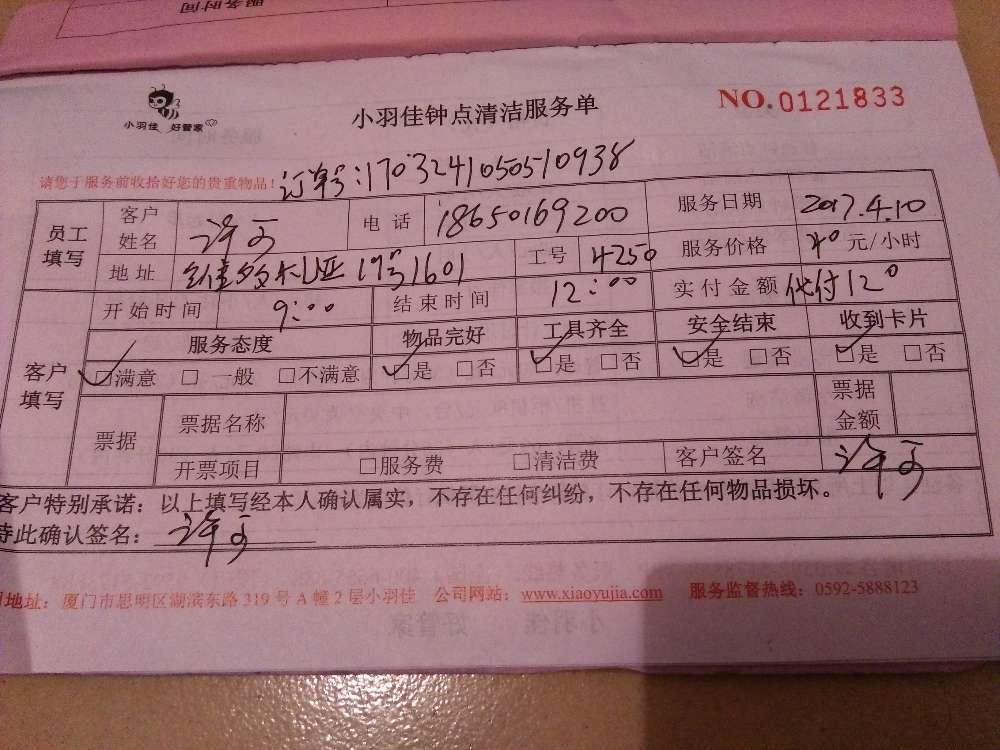 服务时间
小羽佳 好管家
小羽佳钟点清洁服务单
NO.0121833
请您于服务前收拾好您的贵重物品！ 订单号:1703241050510938
员工填写 客户姓名 许可 电话 18650169200 服务日期 2017.4.10
地址 维多利亚19号1601 工号 4250 服务价格 40元/小时
客户填写 开始时间 9:00 结束时间 12:00 实付金额 代付120
服务态度 物品完好 工具齐全 安全结束 收到卡片
☑满意 □一般 □不满意 ☑是 □否 ☑是 □否 ☑是 □否 ☑是 □否
票据 票据名称 票据金额
开票项目 □服务费 □清洁费 客户签名 许可
客户特别承诺：以上填写经本人确认属实，不存在任何纠纷，不存在任何物品损坏。
特此确认签名： 许可
地址：厦门市思明区湖滨东路319号A幢2层小羽佳 公司网站：www.xiaoyujia.com 服务监督热线：0592-5888123